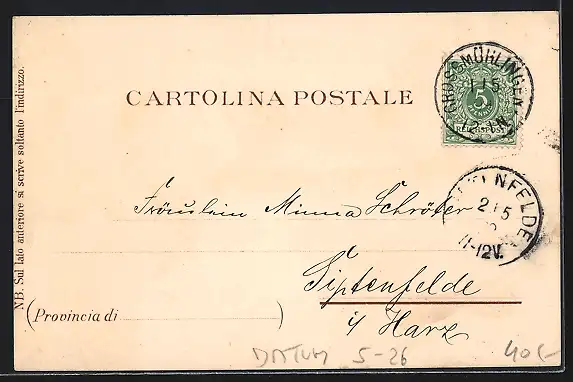 GROSSMÜHLINGEN
1 5
5
PFENNIG
REICHSPOST
CARTOLINA POSTALE
NB. Sul lato anteriore si scrive soltanto l'indirizzo.
NFELDE
2 5
11-12V.
Fräulein Minna Schröter
Siptenfelde
i/ Harz
(Provincia di )
DATUM 5-26
40.-